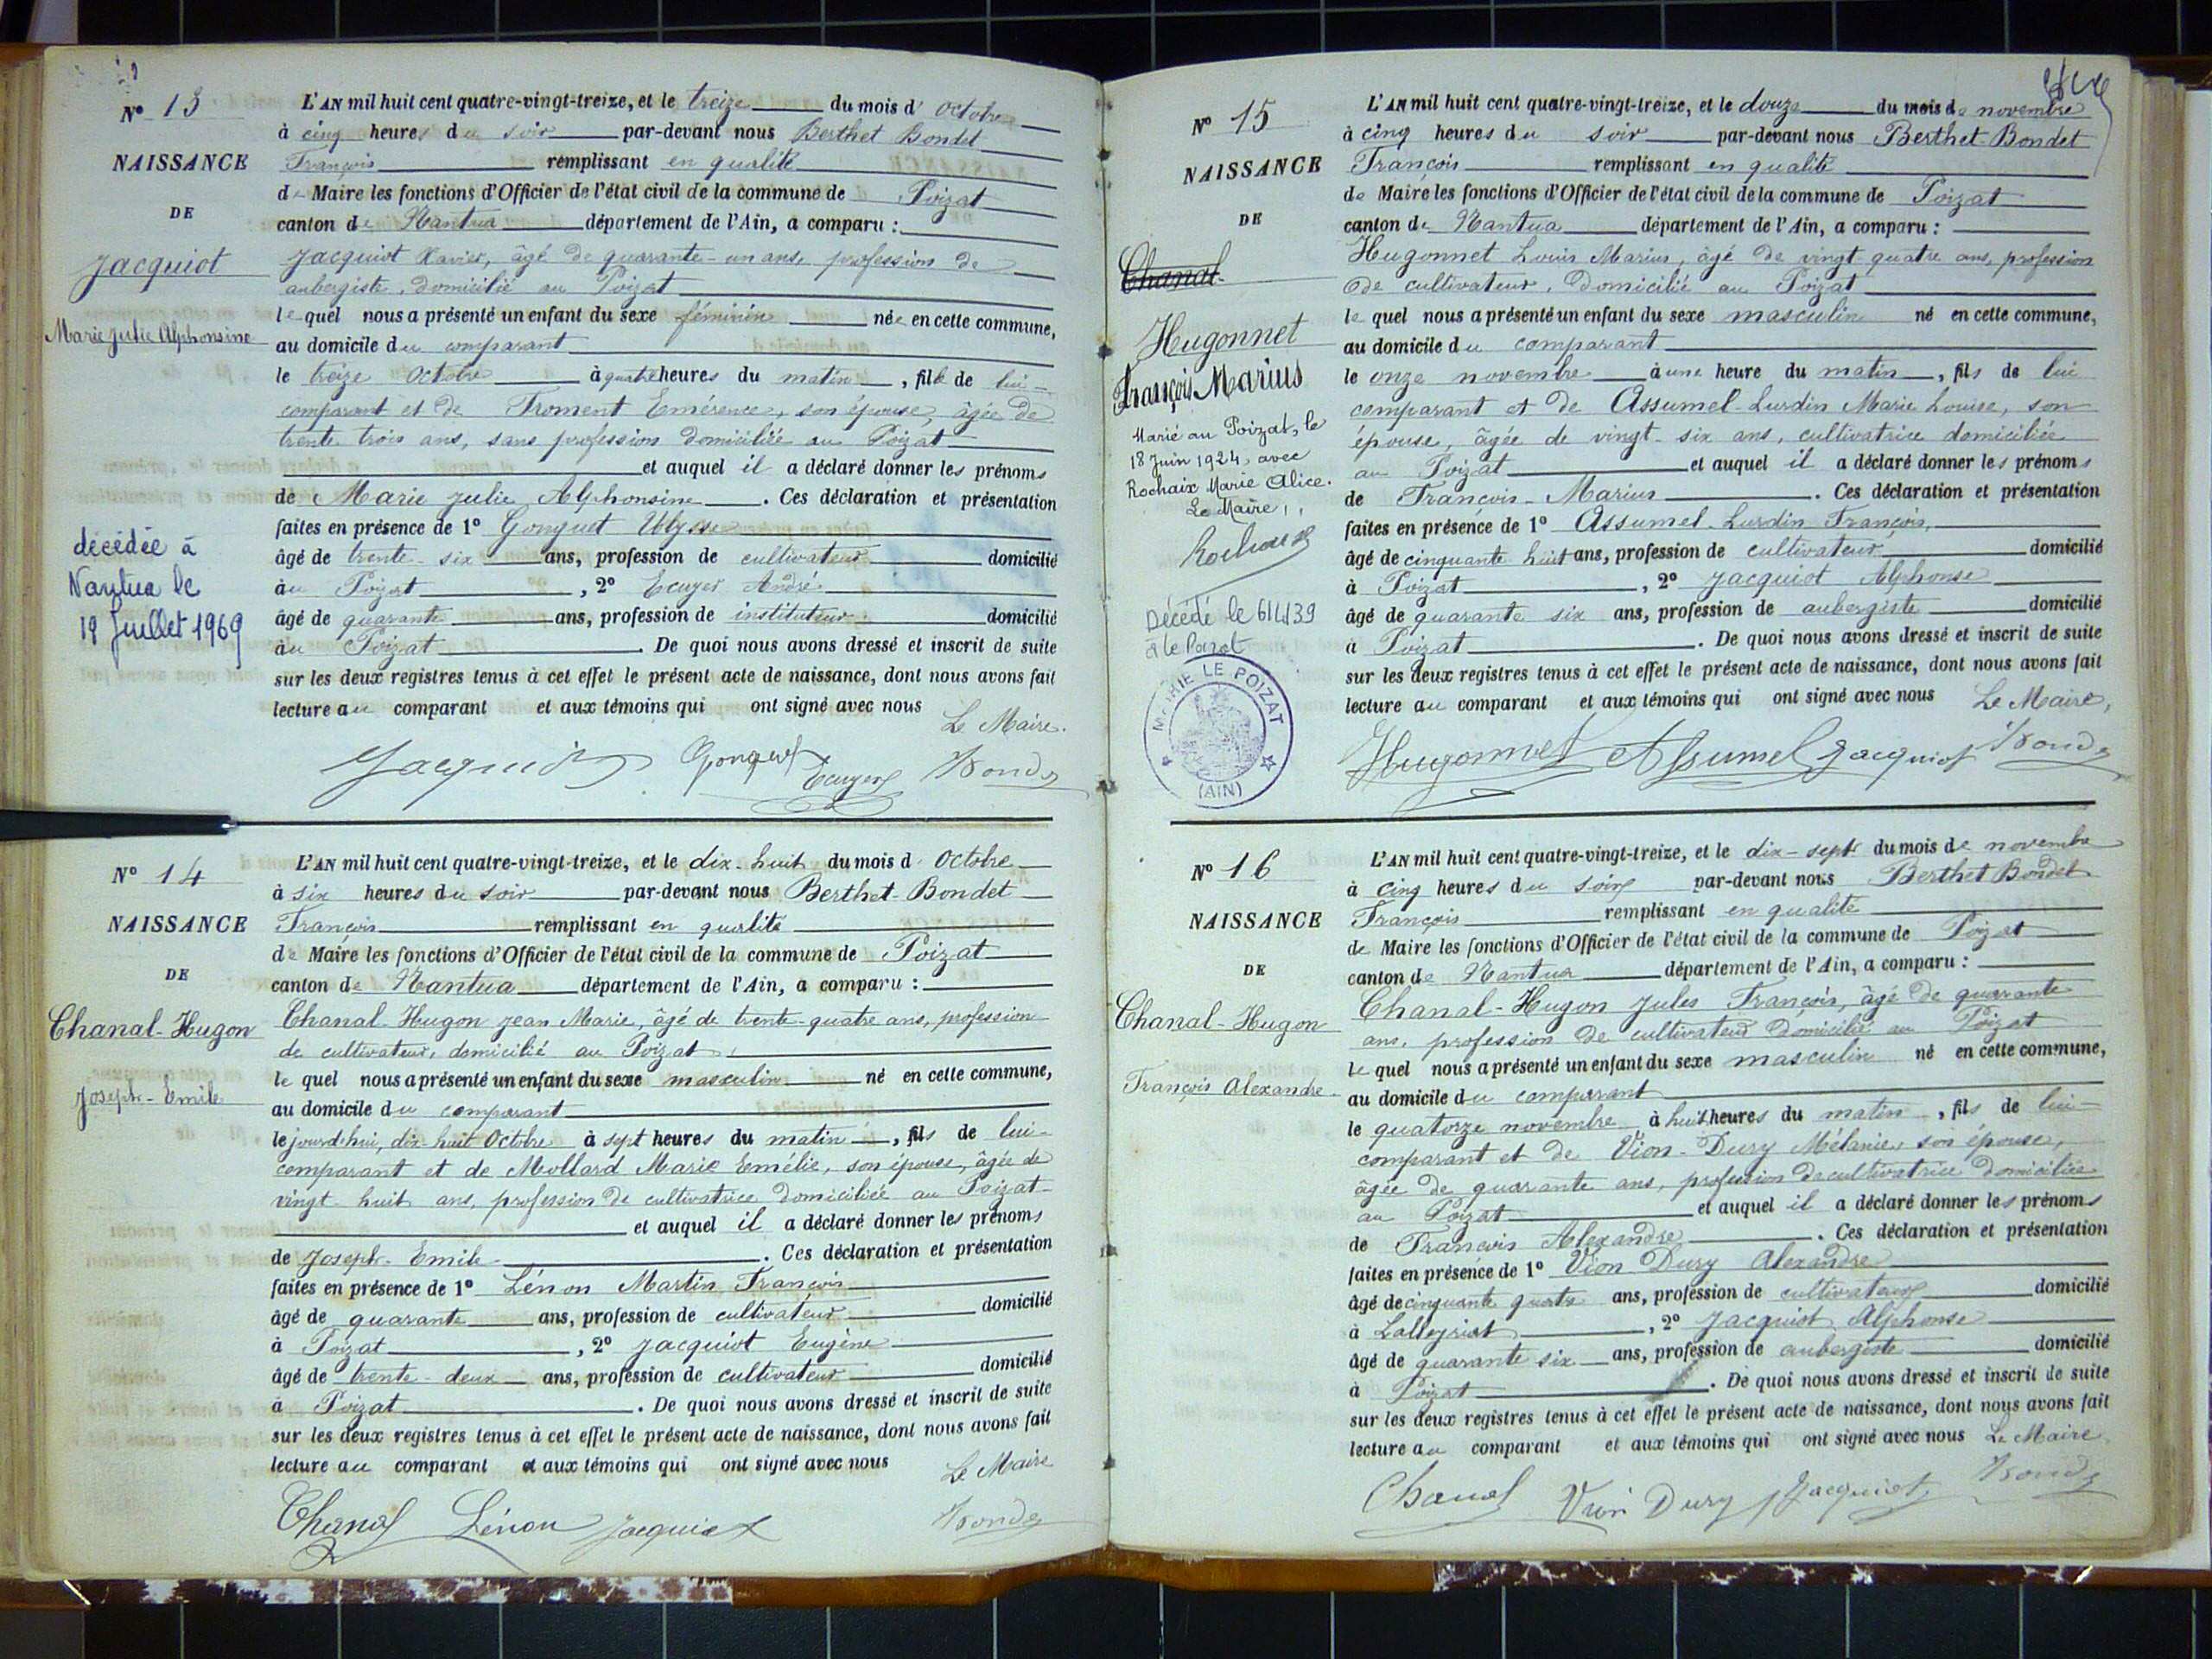 N° 13
NAISSANCE
DE
Jacquiot
Marie Julie Alphonsine
décédée à
Nantua le
19 Juillet 1969
L'AN mil huit cent quatre-vingt-treize, et le treize du mois d' Octobre
à cinq heures du soir par-devant nous Berthet Bondet
François remplissant en qualité
de Maire les fonctions d'Officier de l'état civil de la commune de Poizat
canton de Nantua département de l'Ain, a comparu :
Jacquiot Xavier, âgé de quarante-un ans, profession de
aubergiste, domicilié au Poizat
lequel nous a présenté un enfant du sexe féminin née en cette commune,
au domicile du comparant
le treize Octobre à quatre heures du matin, fille de lui-
comparant et de Froment Emérence, son épouse, âgée de
trente trois ans, sans profession domiciliée au Poizat
et auquel il a déclaré donner les prénoms
de Marie Julie Alphonsine. Ces déclaration et présentation
faites en présence de 1° Gonguet Ulysse
âgé de trente-six ans, profession de cultivateur domicilié
au Poizat, 2° Ecuyer André
âgé de quarante ans, profession de instituteur domicilié
au Poizat. De quoi nous avons dressé et inscrit de suite
sur les deux registres tenus à cet effet le présent acte de naissance, dont nous avons fait
lecture au comparant et aux témoins qui ont signé avec nous
Le Maire.
Jacquiot Gonguet Ecuyer Bondet
N° 14
NAISSANCE
DE
Chanal-Hugon
Joseph-Emile
L'AN mil huit cent quatre-vingt-treize, et le dix-huit du mois d' Octobre
à six heures du soir par-devant nous Berthet-Bondet
François remplissant en qualité
de Maire les fonctions d'Officier de l'état civil de la commune de Poizat
canton de Nantua département de l'Ain, a comparu :
Chanal-Hugon Jean Marie, âgé de trente-quatre ans, profession
de cultivateur, domicilié au Poizat
lequel nous a présenté un enfant du sexe masculin né en cette commune,
au domicile du comparant
le jourd'hui, dix-huit Octobre à sept heures du matin, fils de lui-
comparant et de Mollard Marie Emélie, son épouse, âgée de
vingt-huit ans, profession de cultivatrice domiciliée au Poizat
et auquel il a déclaré donner les prénoms
de Joseph-Emile. Ces déclaration et présentation
faites en présence de 1° Lénon Martin François
âgé de quarante ans, profession de cultivateur domicilié
à Poizat, 2° Jacquiot Eugène
âgé de trente-deux ans, profession de cultivateur domicilié
à Poizat. De quoi nous avons dressé et inscrit de suite
sur les deux registres tenus à cet effet le présent acte de naissance, dont nous avons fait
lecture au comparant et aux témoins qui ont signé avec nous
Le Maire
Chanal Lénon Jacquiot Bondet
N° 15
NAISSANCE
DE
Chanal
Hugonnet
François Marius
Marié au Poizat, le
18 Juin 1924, avec
Rochaix Marie Alice.
Le Maire,
Rochaix
Décédé le 6/4/39
à le Poizat
MAIRIE LE POIZAT
(AIN)
L'AN mil huit cent quatre-vingt-treize, et le douze du mois de novembre
à cinq heures du soir par-devant nous Berthet-Bondet
François remplissant en qualité
de Maire les fonctions d'Officier de l'état civil de la commune de Poizat
canton de Nantua département de l'Ain, a comparu :
Hugonnet Louis Marius, âgé de vingt quatre ans, profession
de cultivateur, domicilié au Poizat
lequel nous a présenté un enfant du sexe masculin né en cette commune,
au domicile du comparant
le onze novembre à une heure du matin, fils de lui
comparant et de Assumel-Lurdin Marie Louise, son
épouse, âgée de vingt-six ans, cultivatrice domiciliée
au Poizat et auquel il a déclaré donner les prénoms
de François-Marius. Ces déclaration et présentation
faites en présence de 1° Assumel-Lurdin François,
âgé de cinquante huit ans, profession de cultivateur domicilié
à Poizat, 2° Jacquiot Alphonse
âgé de quarante six ans, profession de aubergiste domicilié
à Poizat. De quoi nous avons dressé et inscrit de suite
sur les deux registres tenus à cet effet le présent acte de naissance, dont nous avons fait
lecture au comparant et aux témoins qui ont signé avec nous Le Maire,
Hugonnet Assumel Jacquiot Bondet
N° 16
NAISSANCE
DE
Chanal-Hugon
François Alexandre
L'AN mil huit cent quatre-vingt-treize, et le dix-sept du mois de novembre
à cinq heures du soir par-devant nous Berthet Bondet
François remplissant en qualité
de Maire les fonctions d'Officier de l'état civil de la commune de Poizat
canton de Nantua département de l'Ain, a comparu :
Chanal-Hugon Jules François, âgé de quarante
ans, profession de cultivateur domicilié au Poizat
lequel nous a présenté un enfant du sexe masculin né en cette commune,
au domicile du comparant
le quatorze novembre à huit heures du matin, fils de lui-
comparant et de Vion-Dury Mélanie, son épouse,
âgée de quarante ans, profession de cultivatrice domiciliée
au Poizat et auquel il a déclaré donner les prénoms
de François Alexandre. Ces déclaration et présentation
faites en présence de 1° Vion Dury Alexandre
âgé de cinquante quatre ans, profession de cultivateur domicilié
à Lalleyriat, 2° Jacquiot Alphonse
âgé de quarante six ans, profession de aubergiste domicilié
à Poizat. De quoi nous avons dressé et inscrit de suite
sur les deux registres tenus à cet effet le présent acte de naissance, dont nous avons fait
lecture au comparant et aux témoins qui ont signé avec nous Le Maire
Chanal Vion Dury Jacquiot Bondet